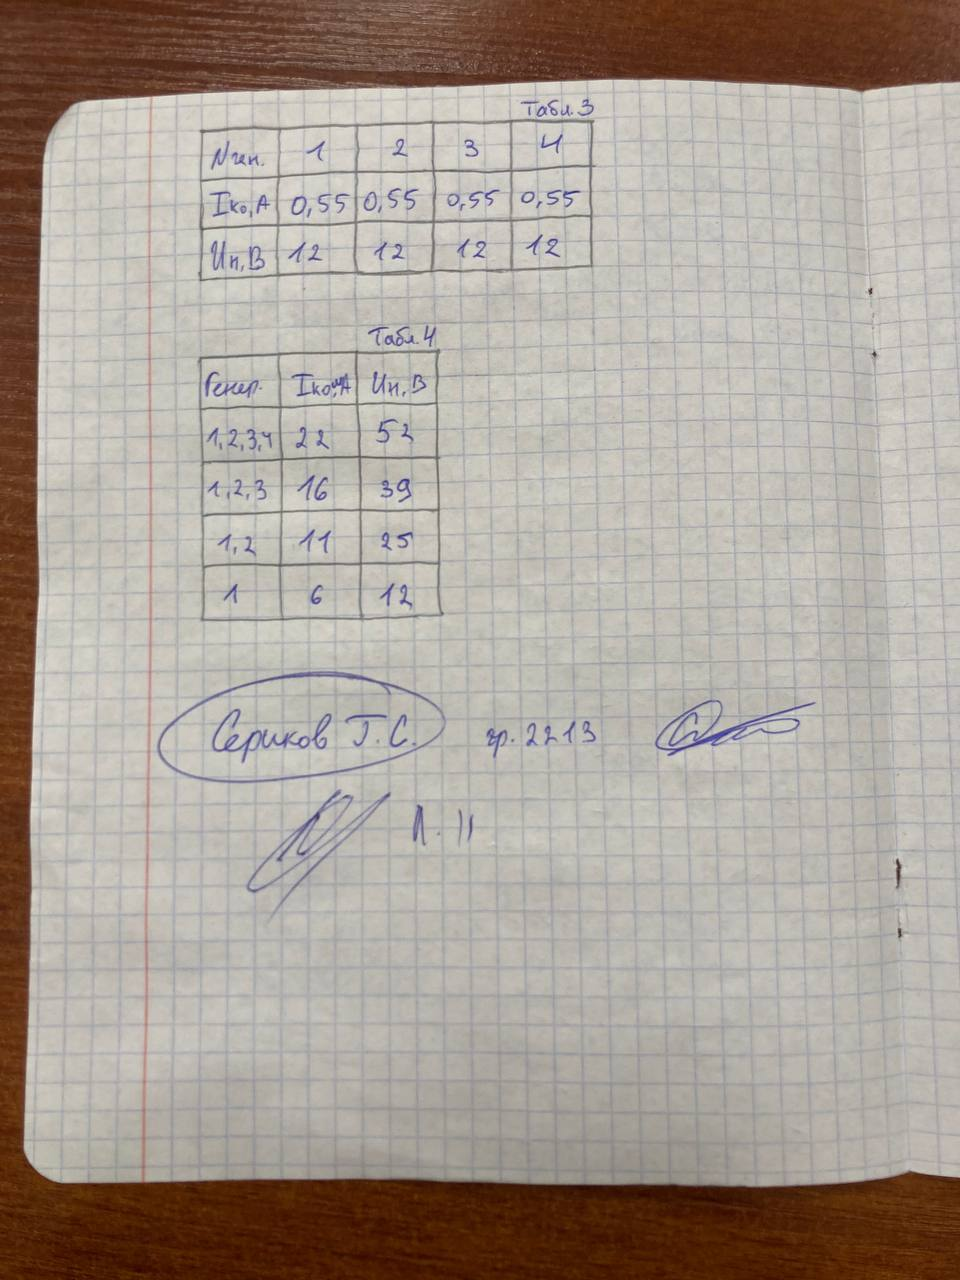 Табл.3
Nген. 1 2 3 4
Iко,А 0,55 0,55 0,55 0,55
Uп,В 12 12 12 12
Табл.4
Генер. Iко,мА Uп,В
1,2,3,4 22 52
1,2,3 16 39
1,2 11 25
1 6 12
Сериков Т.С. гр.2213